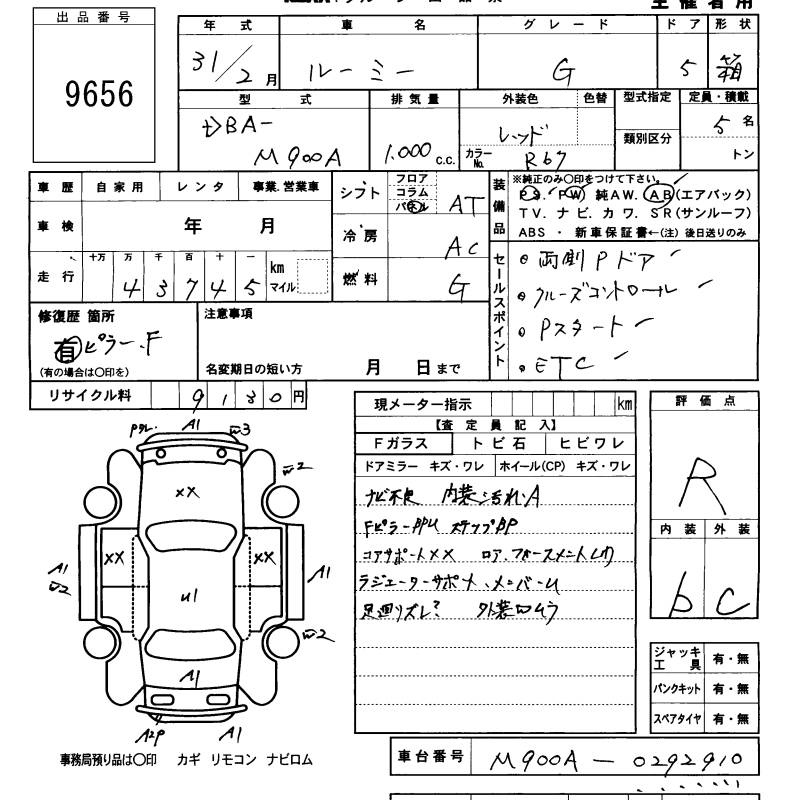 出品番号
9656
年式 車名 グレード ドア 形状
31/2月 ルーミー G 5 箱
型式 排気量 外装色 色替 型式指定 定員・積載
DBA- M900A 1.000 C.C. レッド カラーNo. R67 類別区分 5名 トン
車歴 自家用 レンタ 事業.営業車
シフト フロア コラム パネル AT
装備品 ※純正のみ○印をつけて下さい。
PS. PW 純AW. AB(エアバック)
TV. ナビ. カワ. SR(サンルーフ)
ABS ・ 新車保証書←(注) 後日送りのみ
車検 年 月
冷房 AC
走行 十万 万 千 百 十 一
43745 km マイル
燃料 G
セールスポイント
両側Pドア
クルーズコントロール
Pスタート
ETC
修復歴 箇所
有 ピラー.F
(有の場合は○印を)
注意事項
名変期日の短い方 月 日まで
リサイクル料 9130円
現メーター指示 km
【査定員記入】
Fガラス トビ石 ヒビワレ
ドアミラー キズ・ワレ ホイール(CP) キズ・ワレ
ナビ不良 内装汚れA
FピラーPPU ステップBP
コアサポートXX
ラジエーターサポート、メンバーU
足廻りズレ? 外装切ムラ
評価点
R
内装 外装
b C
A1
XX
XX XX
U1
A1
A1
A1
A1
ジャッキ工具 有・無
パンクキット 有・無
スペアタイヤ 有・無
事務局預り品は○印 カギ リモコン ナビロム
車台番号 M900A-0292910